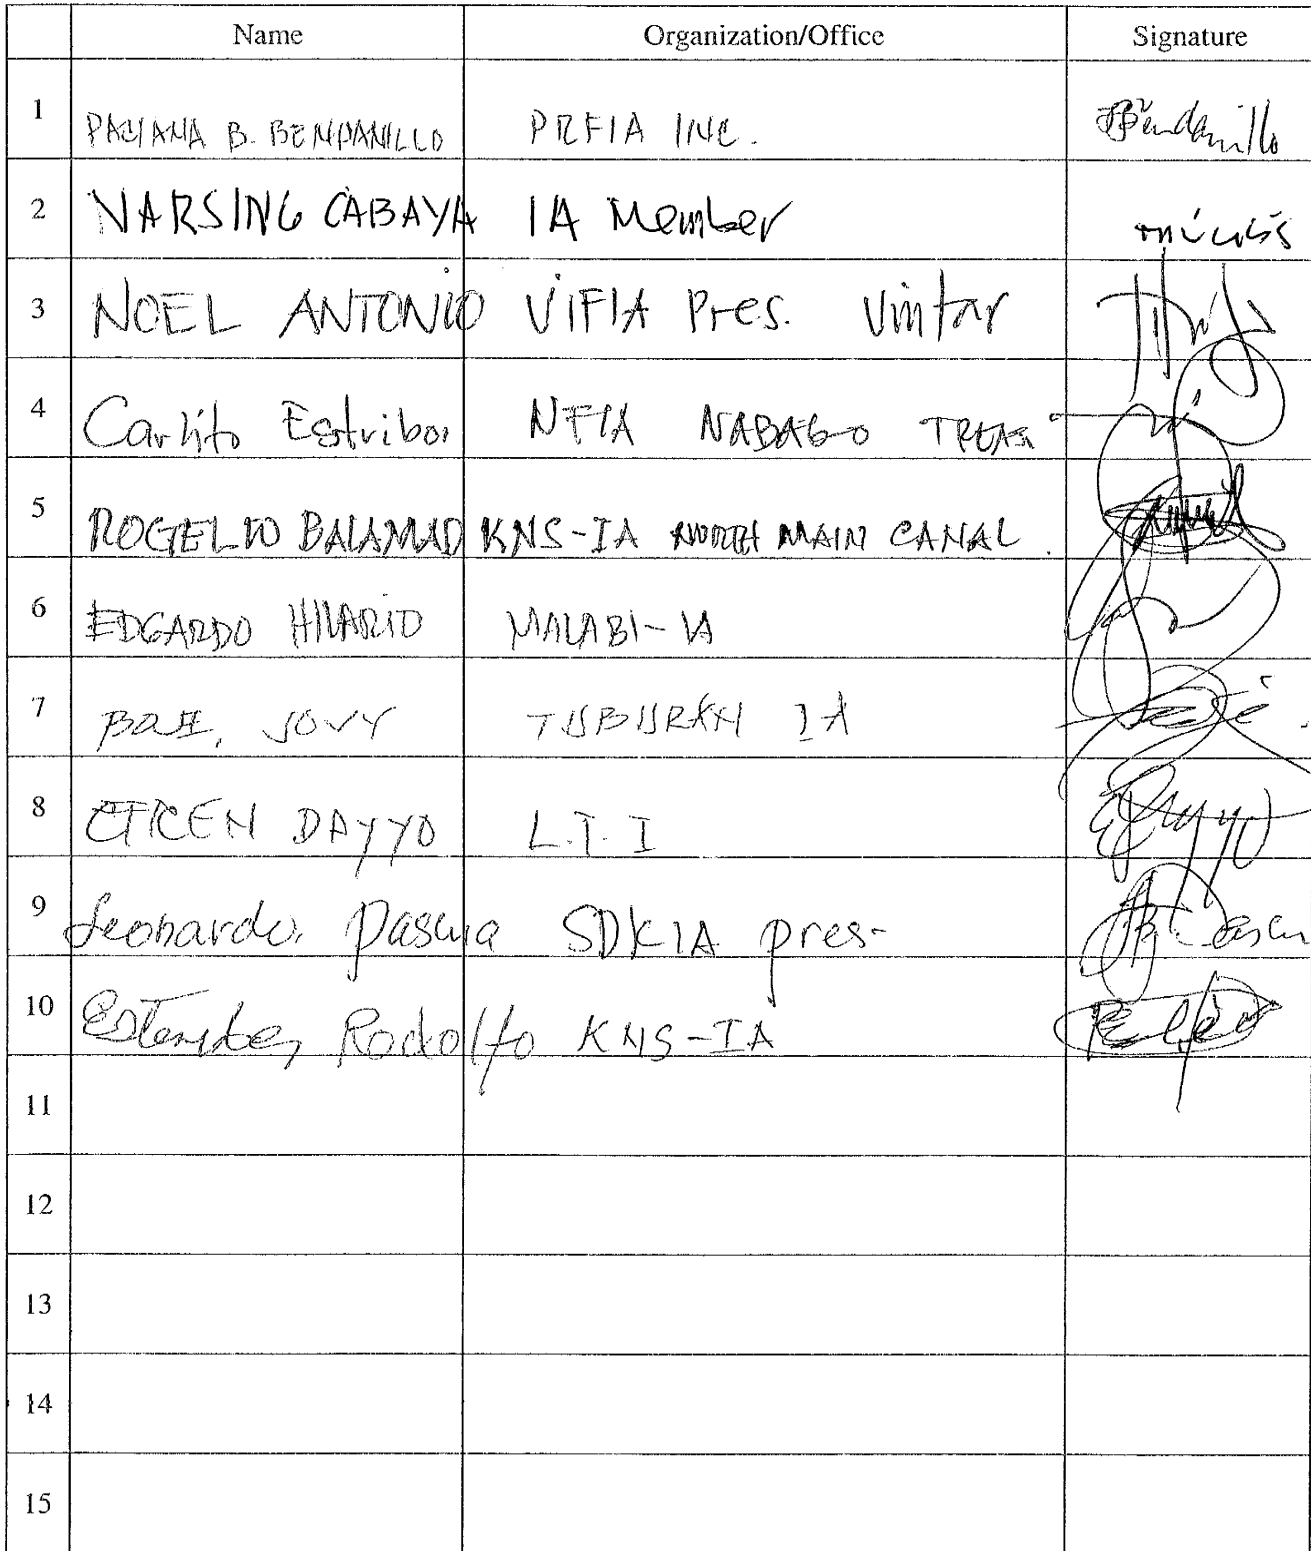 Name Organization/Office Signature
1 PACIANA B. BENDANILLO PRFIA INC. Bendanillo
2 NARSING CABAYA IA Member
3 NOEL ANTONIO VIFIA Pres. Vintar
4 Carlito Estribor NFIA NABAGO TREAS
5 ROGELIO BALAMAD KNS-IA NORTH MAIN CANAL
6 EDGARDO HILARIO MALABI-IA
7 JOVY TUBURAN IA
8 DAYYO L.T.I
9 Leonardo Pascua SDKIA pres-
10 Rodolfo KNS-IA
11
12
13
14
15